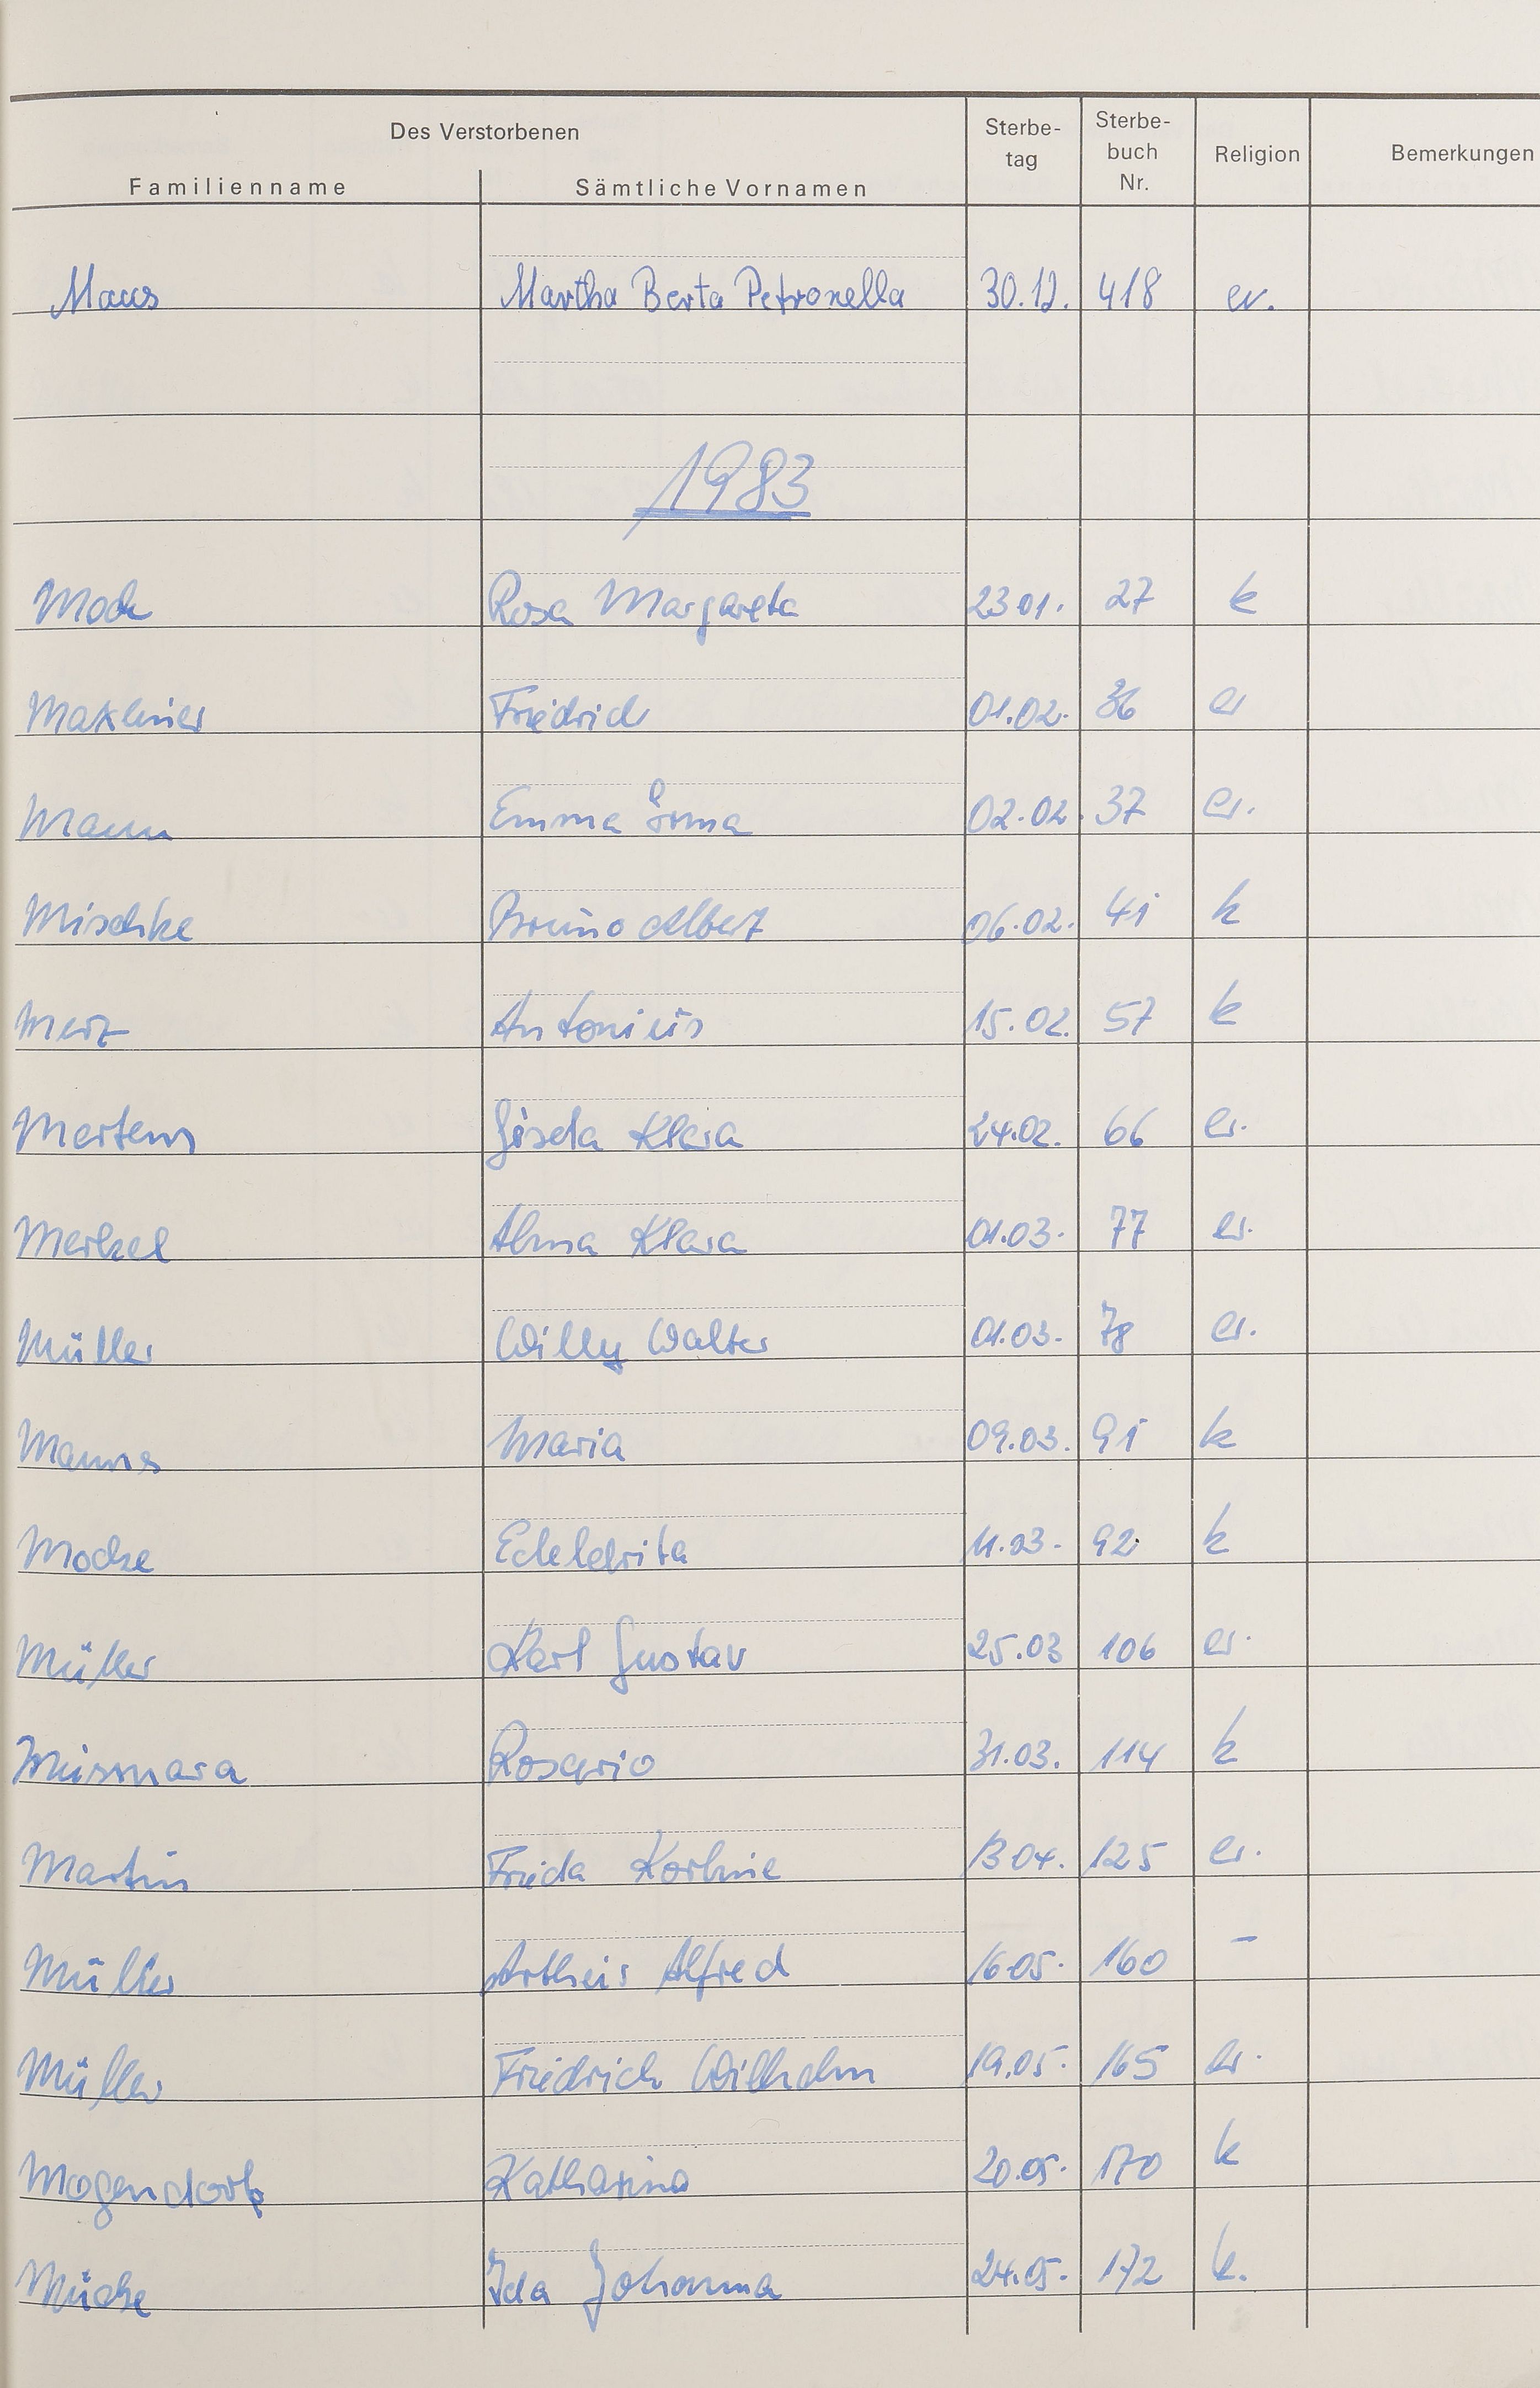 Des Verstorbenen
Familienname Sämtliche Vornamen Sterbe-tag Sterbe-buch Nr. Religion Bemerkungen
Maus Martha Berta Petronella 30.12. 418 ev.
1983
Mock Rosa Margareta 23 01. 27 k
Friedrich 01.02. 36 ev
Mann Emma Irma 02.02. 37 ev.
Mischke Bruno Albert 06.02. 41 k
Merz Antonius 15.02. 57 k
Mertens Gisela Klara 24.02. 66 ev.
Merkel Alma Klara 01.03. 77 ev.
Müller Willy Walter 01.03. 78 ev.
Manns Maria 09.03. 91 k
Mocke 11.03. 92 k
Müller Karl Gustav 25.03 106 ev.
Musmara Rosario 31.03. 114 k
Martin Frieda 13 04. 125 ev.
Müller Alfred 16 05. 160 –
Müller Friedrich Wilhelm 19.05. 165 ev.
Mogendorf Katharina 20.05. 170 k
Mücke Ida Johanna 24.05. 172 k.